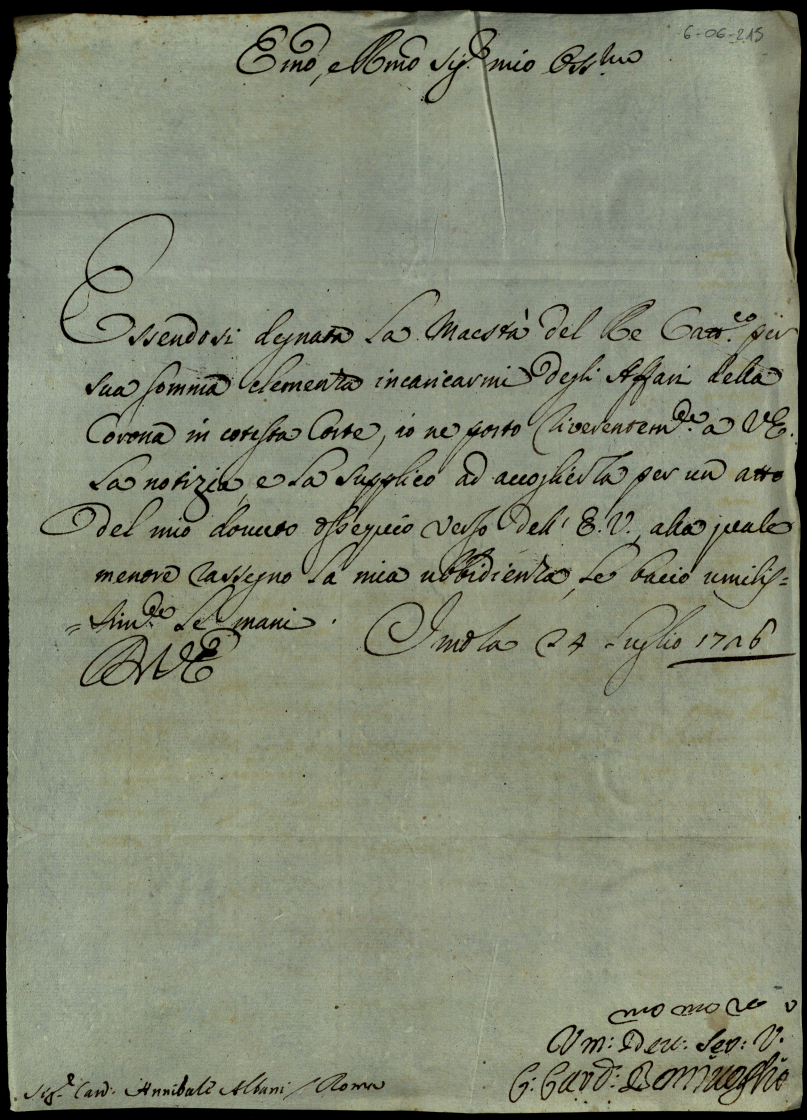 6-06-215
Emo, e Rmo Sigr mio Ossmo
Essendosi degnata La Maestà del Re Cattco per
sua somma clemenza incaricarmi degli Affari della
Corona in cotesta Corte, io ne porto riverentemte a VE.
La notizia, e La supplico ad accoglierla per un atto
del mio dovuto ossequio verso dell' E.V., alla quale
mentre rassegno la mia ubbidienza, Le bacio umilis=
=simte Le mani.
Imola 24 Luglio 1726
DVE
Um: Dev: Ser: V.
C: Card: Bentivoglio
Sigr Card: Annibale Albani / Roma